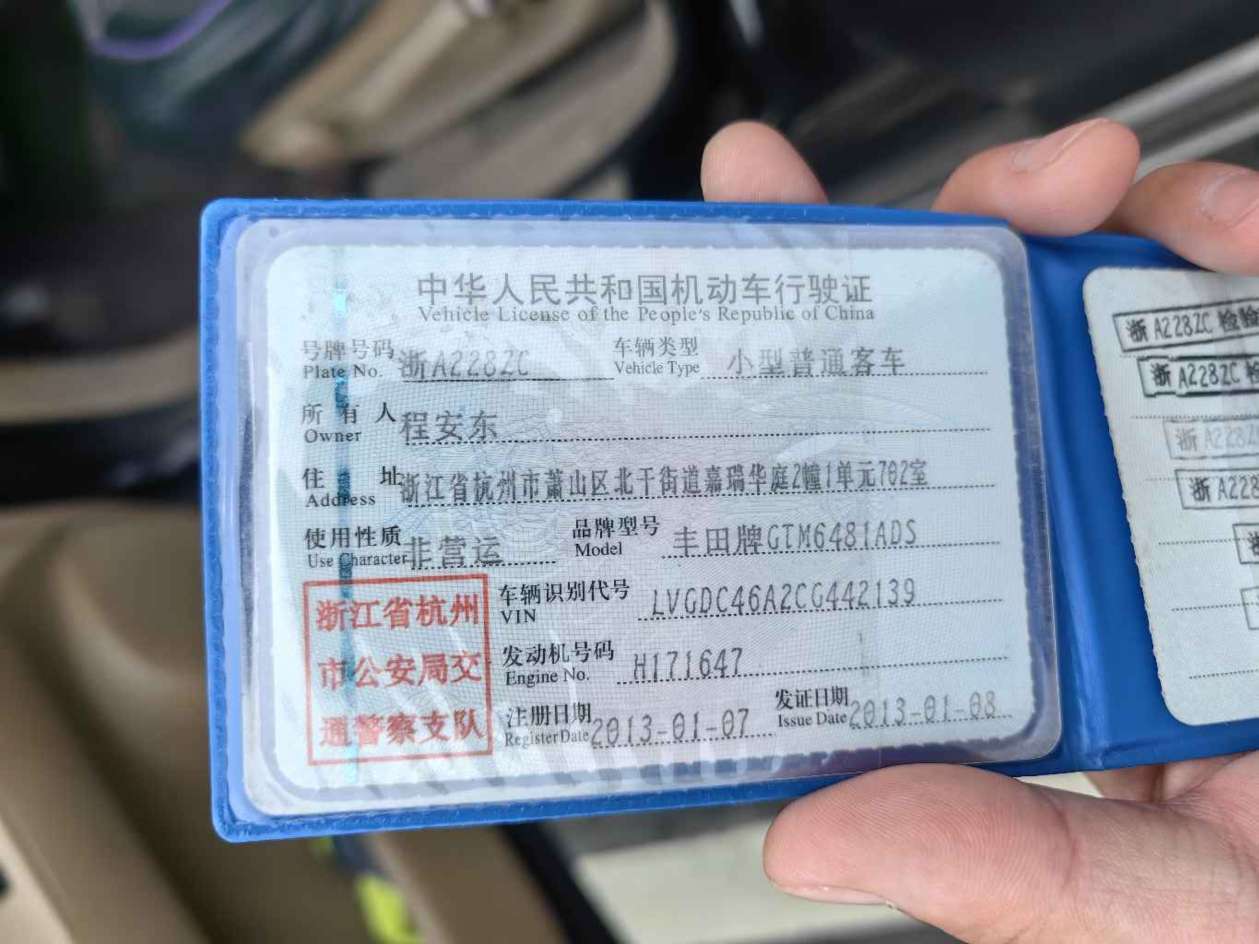 中华人民共和国机动车行驶证
Vehicle License of the People's Republic of China
号牌号码 浙A228ZC 车辆类型 小型普通客车
Plate No. Vehicle Type
所有人 程安东
Owner
住址 浙江省杭州市萧山区北干街道嘉瑞华庭2幢1单元702室
Address
使用性质 非营运 品牌型号 丰田牌GTM6481ADS
Use Character Model
浙江省杭州
市公安局交
通警察支队
车辆识别代号 LVGDC46A2CG442139
VIN
发动机号码 H171647
Engine No.
注册日期 2013-01-07 发证日期 2013-01-08
Register Date Issue Date
浙A228ZC 检验
浙A228ZC 检
浙A228Z
浙A228